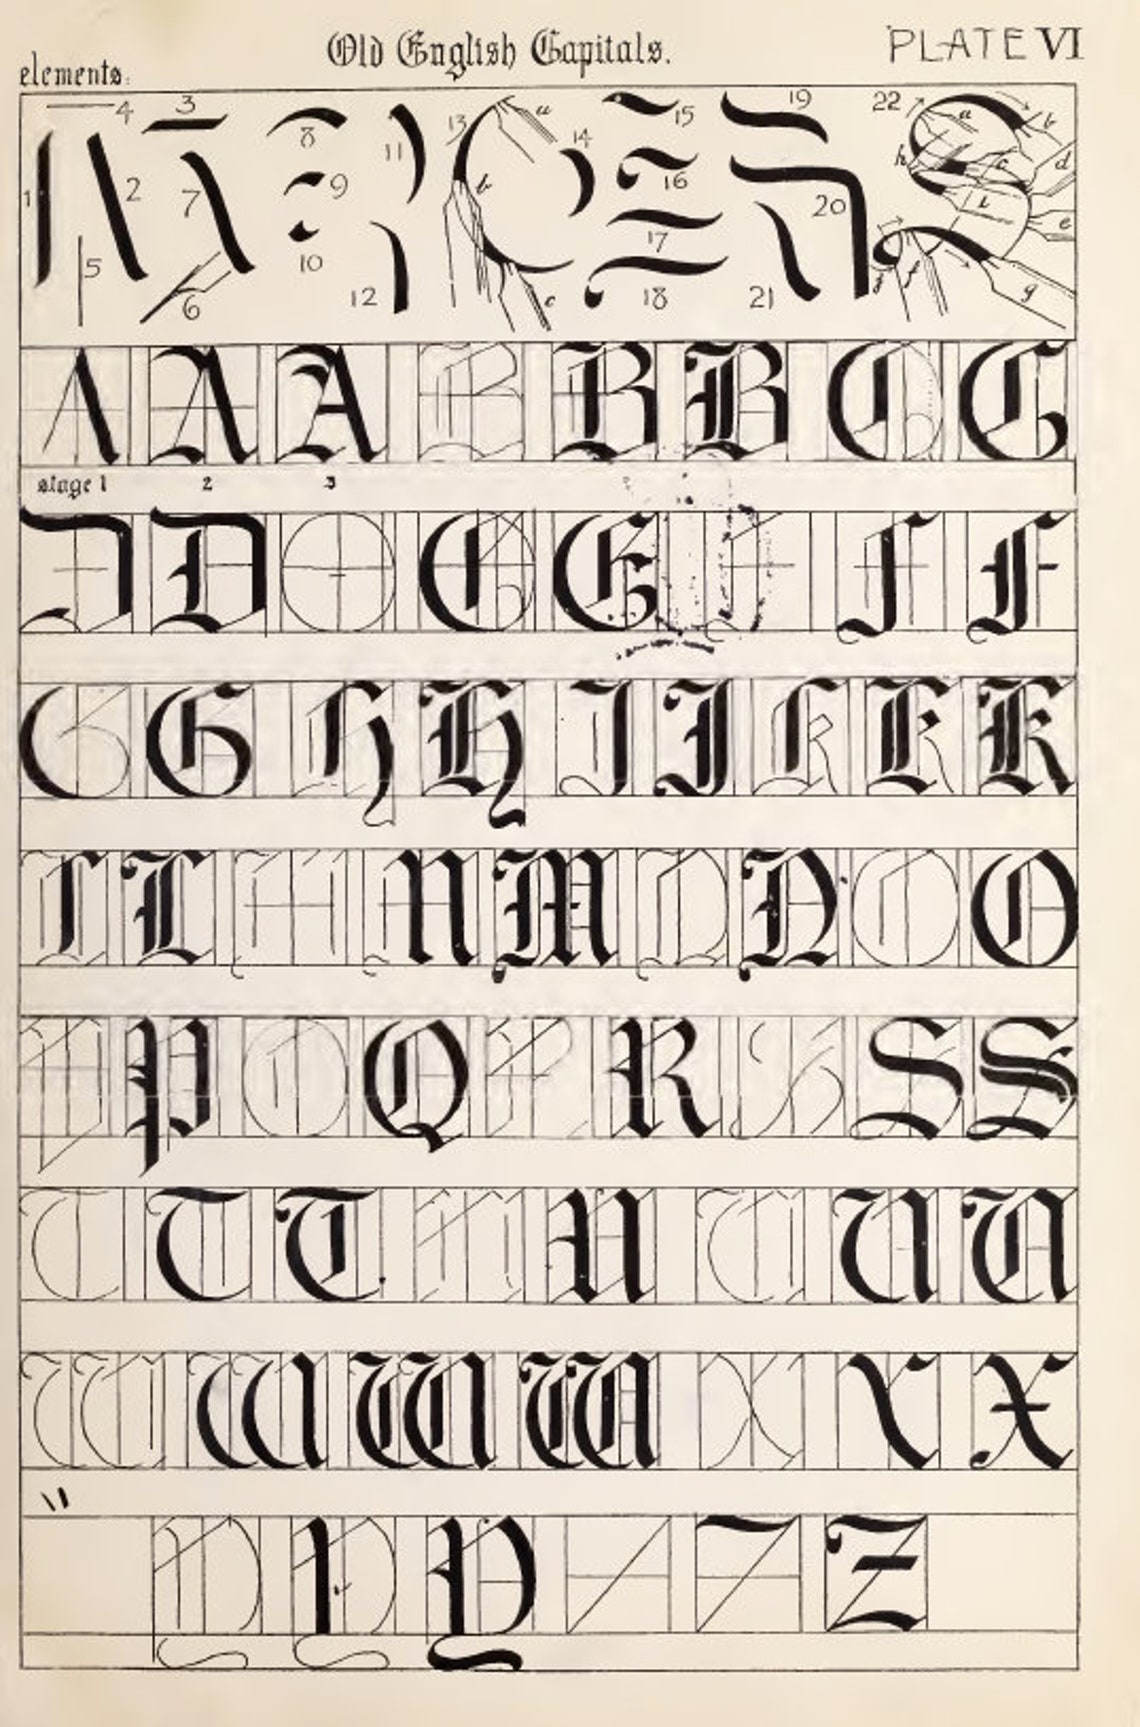 Old English Capitals.
PLATE VI
elements:
1 2 3 4 5 6 7 8 9 10 11 12 13 a b c 14 15 16 17 18 19 20 21 22 a b c d e f g h i j
A A A B B B C G
stage 1 2 3
D D C E F F
G G H H I I K K K
L L M M N O
P Q R S S
T T T U U U U
W W W W X X
Y Y Y Z Z